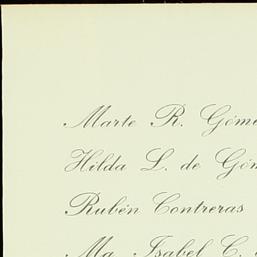 Marte R. Góme
Hilda L. de Góm
Rubén Contreras
Ma. Isabel C.